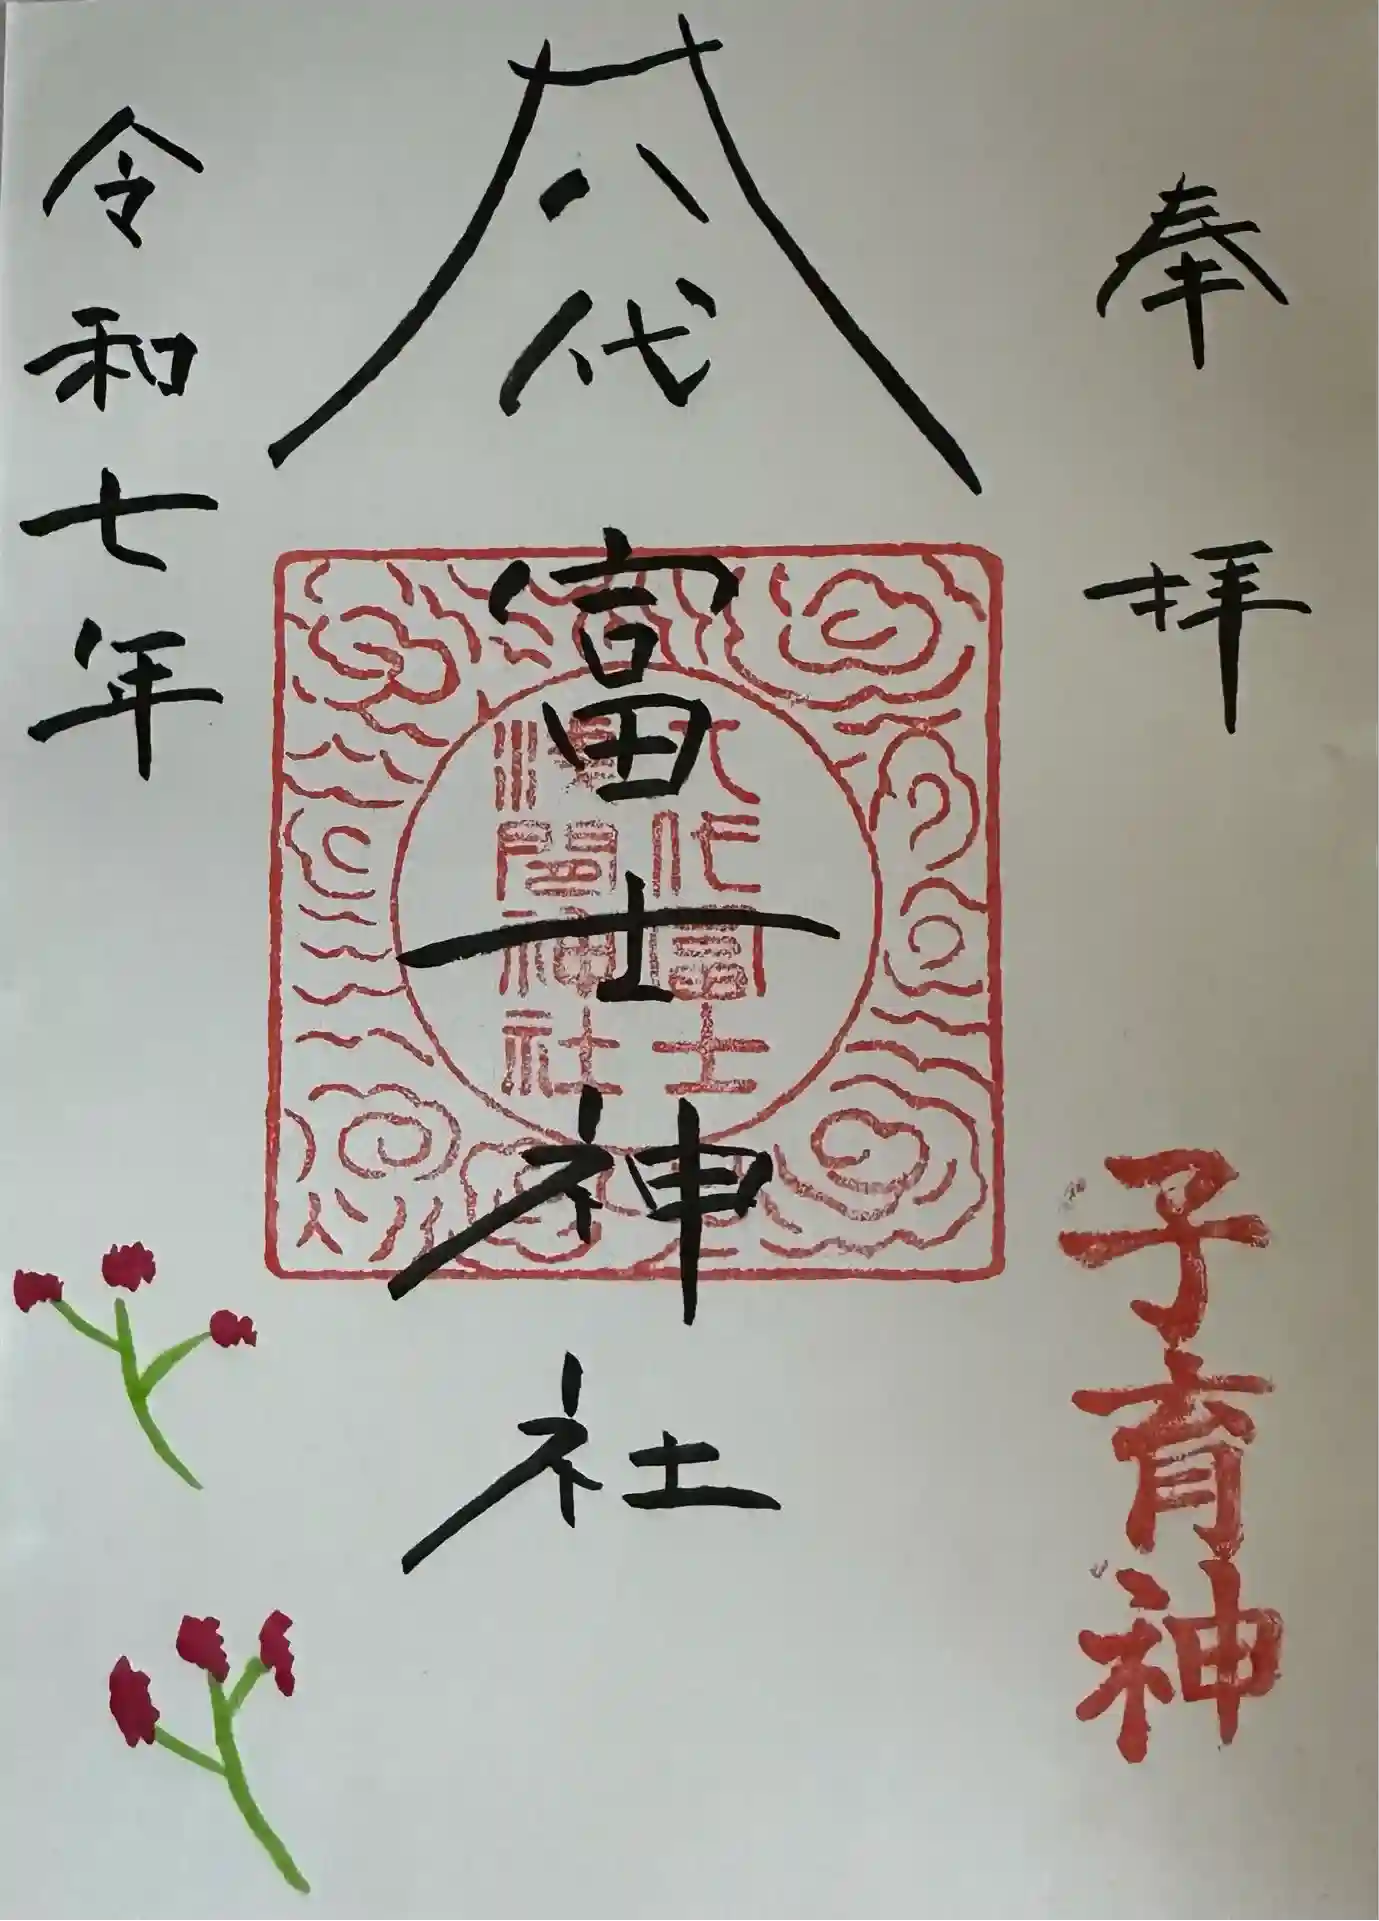 奉拝
子育神
八代
富士神社
八代富士
浅間神社
令和七年